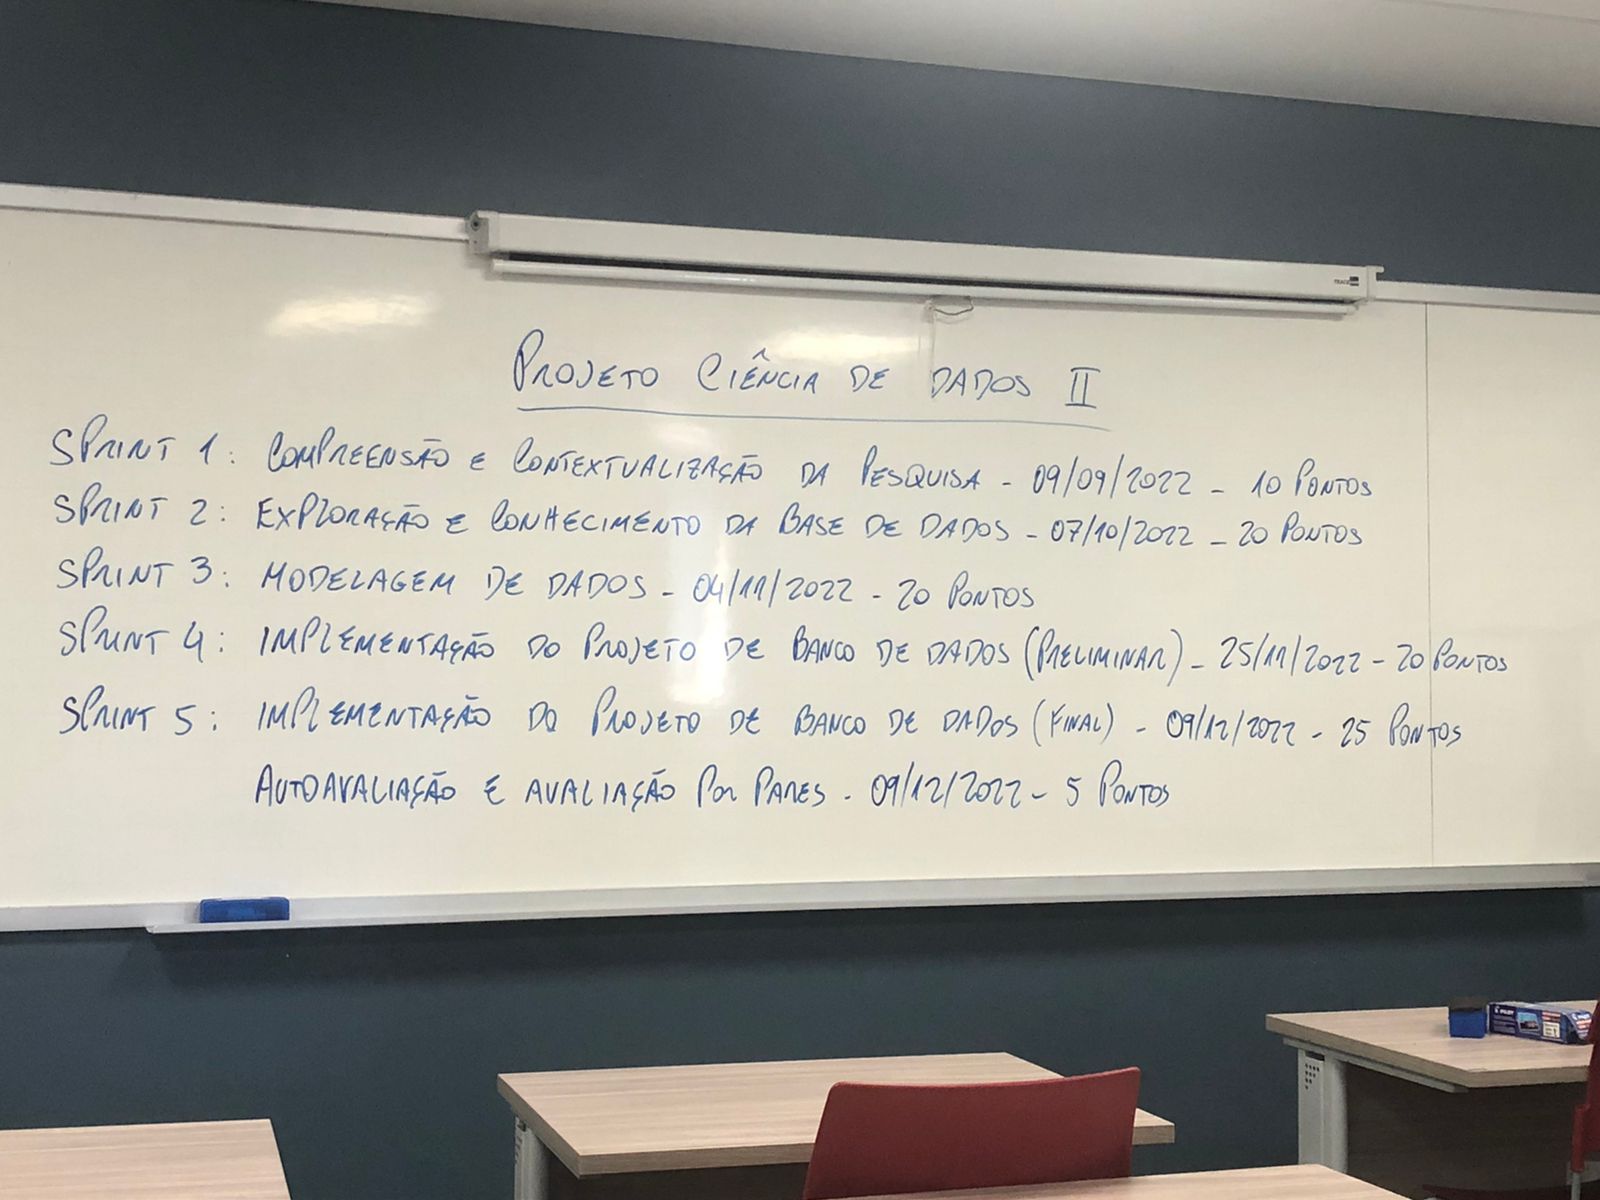 TRACE
PROJETO CIÊNCIA DE DADOS II
SPRINT 1: COMPREENSÃO E CONTEXTUALIZAÇÃO DA PESQUISA - 09/09/2022 - 10 PONTOS
SPRINT 2: EXPLORAÇÃO E CONHECIMENTO DA BASE DE DADOS - 07/10/2022 - 20 PONTOS
SPRINT 3: MODELAGEM DE DADOS - 04/11/2022 - 20 PONTOS
SPRINT 4: IMPLEMENTAÇÃO DO PROJETO DE BANCO DE DADOS (PRELIMINAR) - 25/11/2022 - 20 PONTOS
SPRINT 5: IMPLEMENTAÇÃO DO PROJETO DE BANCO DE DADOS (FINAL) - 09/12/2022 - 25 PONTOS
AUTOAVALIAÇÃO E AVALIAÇÃO POR PARES - 09/12/2022 - 5 PONTOS
PILOT